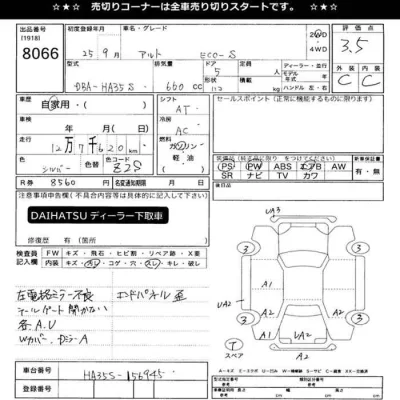 ★ ☆ ★ 売切りコーナーは全車売り切りスタートです。 ★ ☆ ★
出品番号 [1918] 8066
初度登録年月 25年9月
車名・グレード アルト ECO-S
2WD・4WD
評価点 3.5
型式 DBA-HA35S
排気量 660cc
ドア 5
定員 人
ディーラー・並行
モデル 年式
ハンドル 左・右
外装 C 内装 C
車歴 自家用・( )
シフト AT
走行 12万7千620km
冷房 AC
燃料 ガソリン・軽油
色 シルバー 色替 色コード Z2S
R券 8560 名変通知期限 月 日
セールスポイント (正常に機能するものに限ります)
装備品 (純正品に限り をつけてください) 新車保証書
PS PW ABS エアB AW 有・無
SR ナビ TV カワ
注意事項申告欄(不具合内容等は具体的に記入して下さい)
DAIHATSU ディーラー下取車
修復歴 有 (箇所
検査員記入欄 FW キズ・飛石・ヒビ割・リペア跡・X要
内装 キズ・汚レ・コゲ・穴・スレ・キレ・破レ
左電格ミラー不良 エンドパネル歪
テールゲート開かない
各A.U
Wカバー、Dミラー A
車台番号 HA35S-156945
登録番号
日产品
UA3
3 3
A1 A2
UA2 A1 UA2
3 3
A2
T スペア